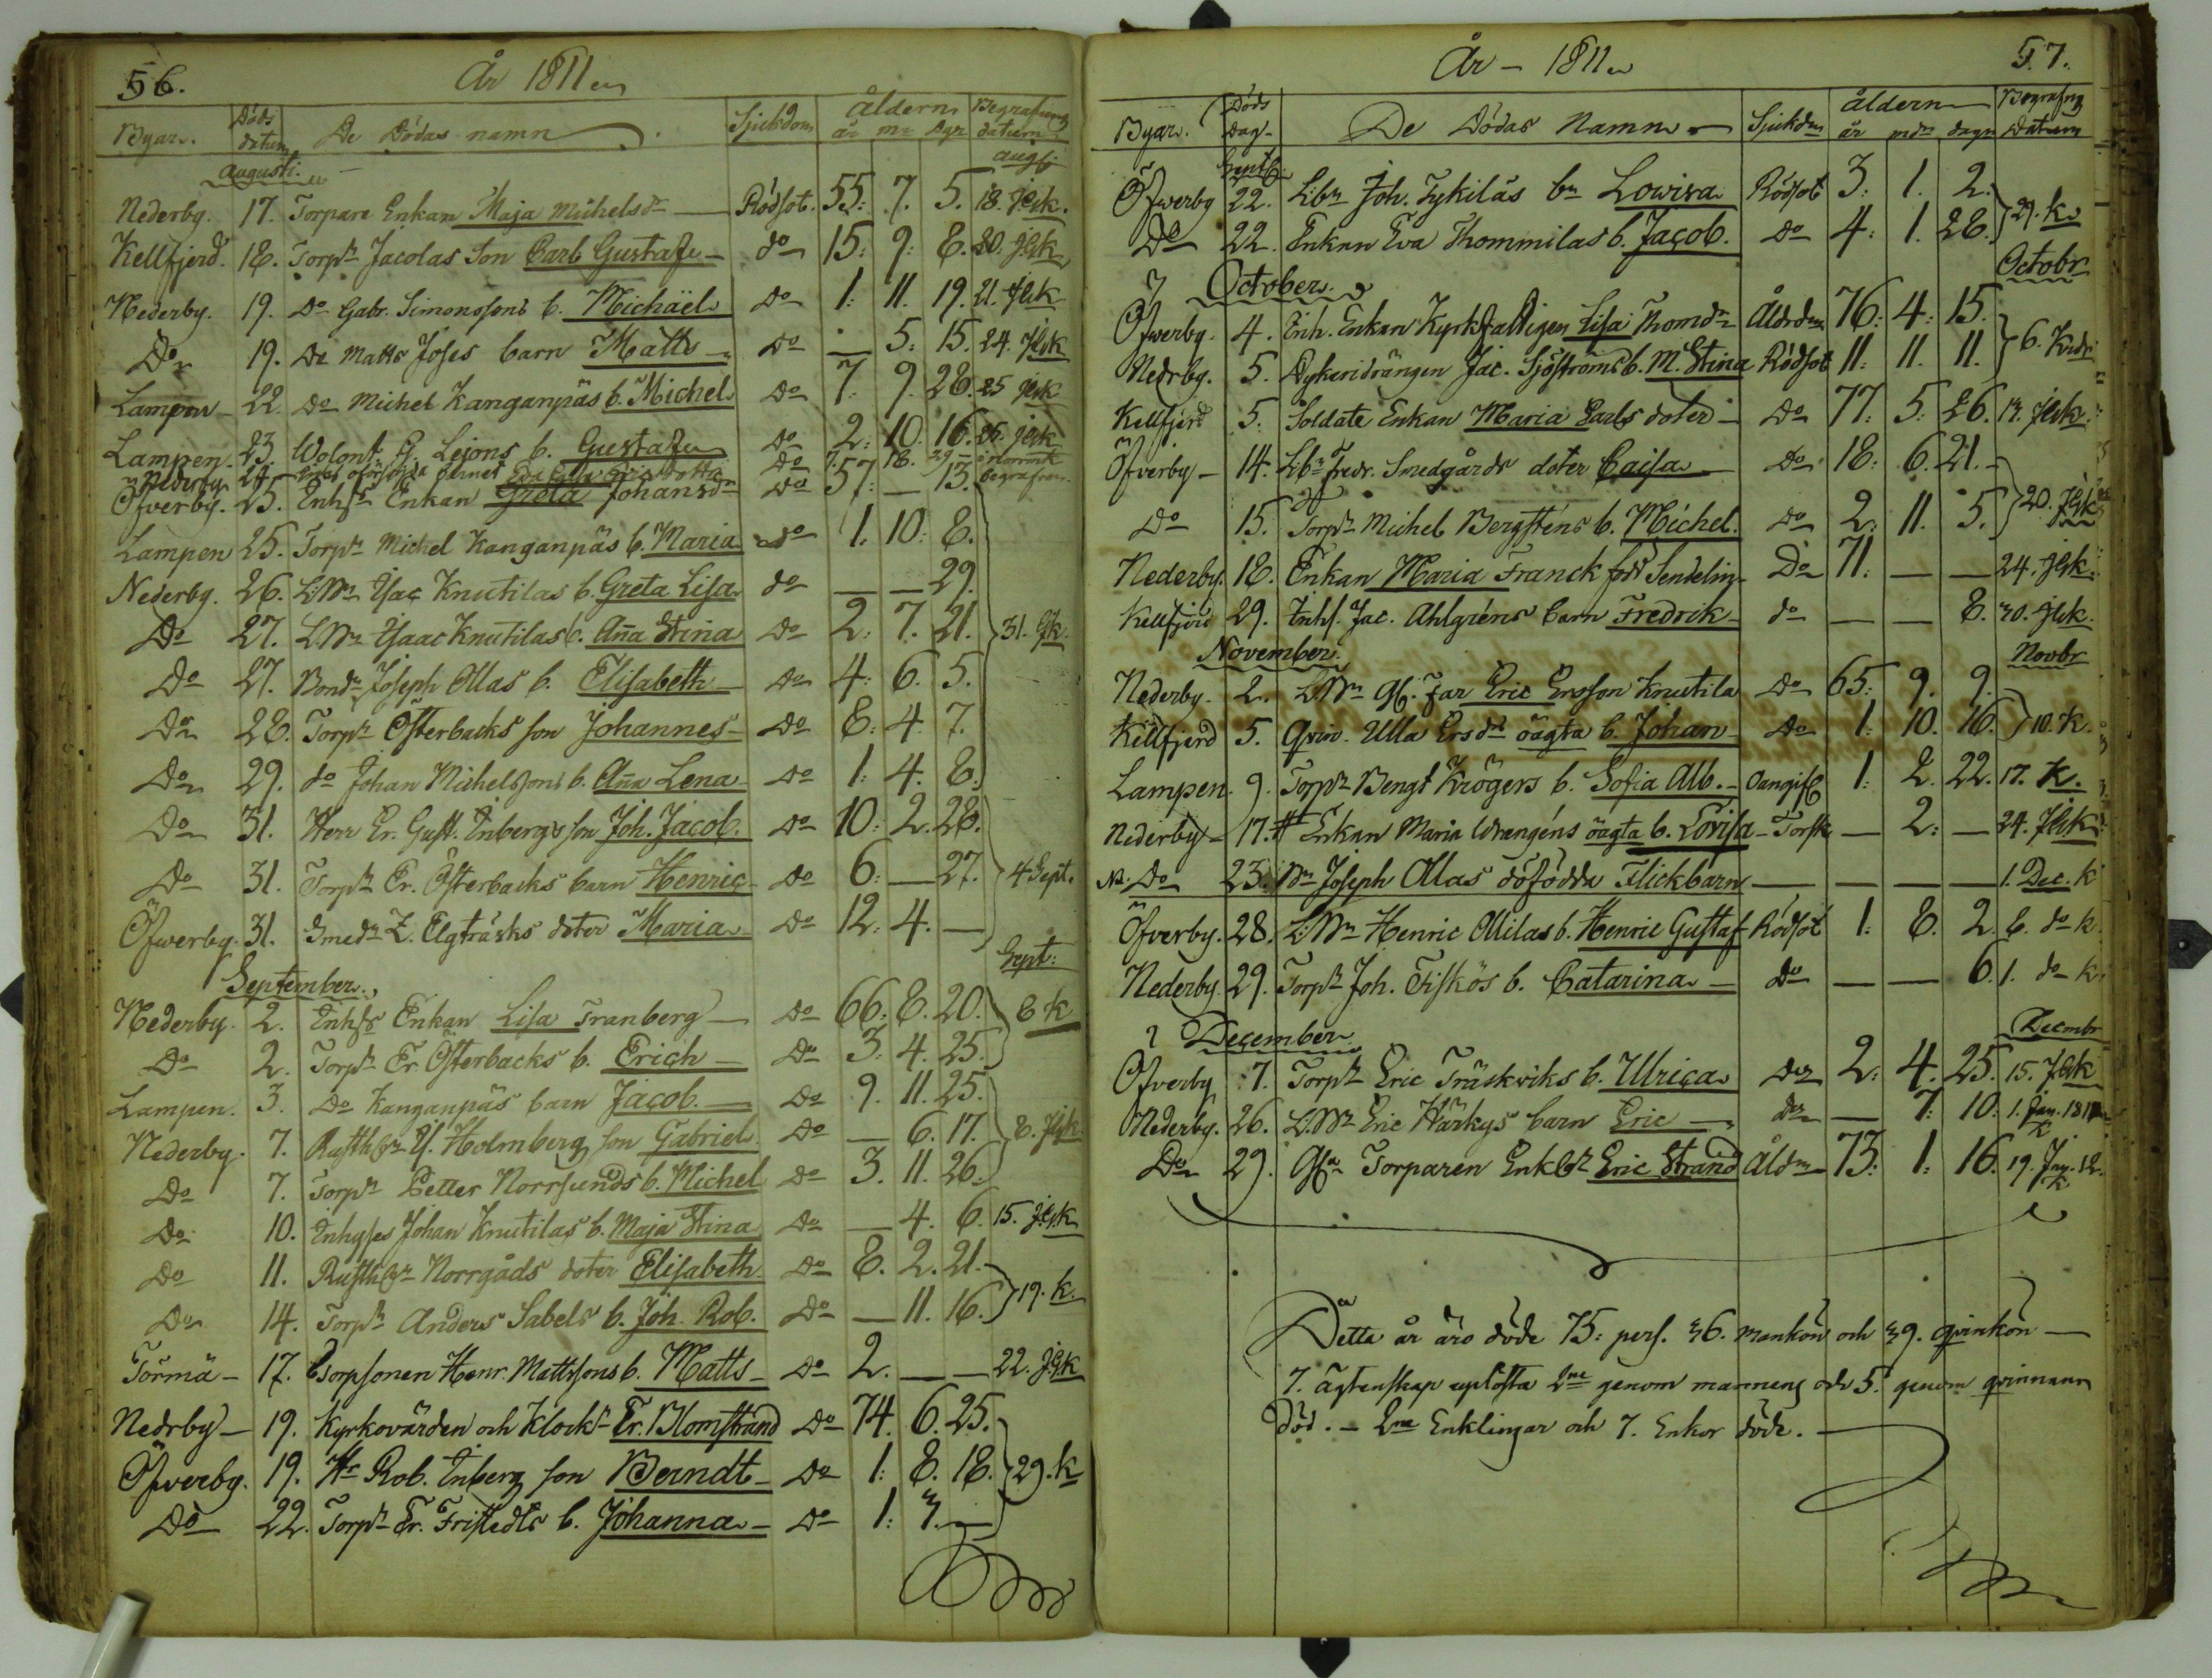 56.
År 1811
Byar. Döds datum De Dödas namn Sjukdom Åldern år mr dgr Begrafnings datum
Augusti. Aug:
Nederby. 17. Torpare Enkan Maja Michelsdr Rödsot. 55: 7. 5. 18. Jelk.
Kellfjerd. 18. Torpr Jacolas Son Carl Gustaf do 15: 9: 8. 20. Jelk
Nederby. 19. Do Gabr. Simonssons b. Michäel Do 1: 11. 19. 21. Jelk
Do 19. Do Matts Joses barn Matts Do — 5: 15. 24. Jelk
Lampen 22. Do Michel Kanganpäs b. Michel Do 7. 9. 28. 25 Jelk
Lampen. 23. Wolont. G. Lejons b. Gustaf Do 2: 10. 16. 25. Jelk
Nederby 24. Do 7. 18. 29
Öfverby. 25. Enkan Greta Johansdr Do 57: — 13. begrafven.
Lampen 25. Torpr Michel Kanganpäs b. Maria do 1. 10: 8.
Nederby. 26. L:Mn Isac Knutilas b. Greta Lisa do — — 29.
Do 27. L:Mn Isaac Knutilas b. Aña Stina Do 2: 7. 21. 31. Jk.
Do 27. Bondn Joseph Ollas b. Elisabeth Do 4: 6. 5.
Do 28. Torpr Österbacks son Johannes Do 8: 4. 7.
Do 29. do Johan Michelssons b. Aña Lena Do 1: 4. 8.
Do 31. Herr Er. Gust. Enbergs son Joh. Jacob. Do 10: 2. 28.
Do 31. Torpr Er. Österbacks barn Henric Do 6: — 27. 4 Sept.
Öfwerby. 31. Smedn Z. Elgträsks doter Maria Do 12: 4. —
September. Sept:
Nederby. 2. Inhs Enkan Lisa Tranberg Do 66: 8. 20. 8 k
Do 2. Torpr Er. Österbacks b. Erich Do 3: 4. 25.
Lampen. 3. Do Kanganpäs barn Jacob. Do 9. 11. 25.
Nederby. 7. Holmberg son Gabriel Do — 6. 17. 8. Jelk
Do 7. Torpr Petter Norrsunds b. Michel Do 3. 11. 26.
Do 10. Inhyses Johan Knutilas b. Maja Stina Do — 4. 6. 15. Jelk
Do 11. Rusthr Norrgåds doter Elisabeth Do 8. 2. 21.
Do 14. Torpr Anders Sabels b. Joh. Rob. Do — 11. 16. 19. k.
Törmä 17. Torpsonen Henr. Mattssons b. Matts Do 2. — — 22. Jelk
Nedrby 19. Kyrkovärden och Klockn Er. Blomstrand Do 74. 6. 25.
Öfverby. 19. Hr Rob. Enberg son Berndt Do 1: 8. 18. 29. k
Do 22. Torpr Er. Fristedts b. Johanna Do 1: 3. —
År 1811
57.
Byar. Döds Dag De Dödas Namn Sjukdm åldern år mdr dagr Begrafng Datum
Sept.
Öfwerby 22. L:bn Joh. Tykiläs bn Lowisa Rödsot 3: 1. 2.
Do 22. Enkan Eva Thommilas b. Jacob. Do 4: 1. 28. 29. k
October Octobr
Öfwerby. 4. Inh. Enkan Kyrkfattigen Lisa Thomdr Åldrdm 76: 4: 15.
Nedrby. 5. Dykeridrängen Jac. Sjöströms b. M. Stina Rödsot 11: 11. 11. 6.
Kellfjerd 5. Soldate Enkan Maria Carls doter Do 77: 5: 26. 13. Jelk.
Öfverby 14. Lbn Fredr. Smedgårds doter Caisa Do 18: 6. 21.
Do 15. Torpr Michel Bergsténs b. Michel. Do 2: 11. 5. 20. Jelk
Nederby. 18. Enkan Maria Franck född Sendelin Do 71: — — 24. Jelk
Kellfjerd 29. Inhs. Jac. Ahlgréns barn Fredrik do — — 8. 30. Jelk.
November Novbr
Nederby. 2. L:Mn Gl. Far Eric Ersson Knutila Do 65: 9. 9.
Kellfjerd 5. Qvin. Ulla Ersdr oägta b. Johan Do 1: 10. 16. 10. k.
Lampen. 9. Torpr Bengt Krögers b. Sofia Alb. Oangif 1: 2. 22. 17. k.
Nederby 17. # Enkan Maria Wrangéns oägta b. Lovisa Torsk — 2: — 24. Jelk
Nä. Do 23. Bn Joseph Ollas döfödda Flickbarn — — — — 1. Dec. k
Öfverby. 28. L:Mn Henric Ollilas b. Henric Gustaf Rödsot 1: 8. 2. 8. do k
Nederby. 29. Torpr Joh. Fiskös b. Catarina do — — 6. 1. do k.
December Decmbr
Öfverby 7. Torpr Eric Träskviks b. Ulrica do 2: 4. 25. 15. Jelk
Nederby. 26. L:Mn Eric Härkys barn Eric do — 7: 10: 1. Jan. 1812 k
Do 29. Gl. Torparen Enkl Eric Strand Åldm 73: 1: 16. 19. Jan. 12. k
Detta år äro döde 75: pers. 36. mankön och 39. qvinkön
7. ägtenskap uplösta 2ne genom mannens och 5. genom qvinnans
Död. – 2ne Enklingar och 7. Enkor döde.